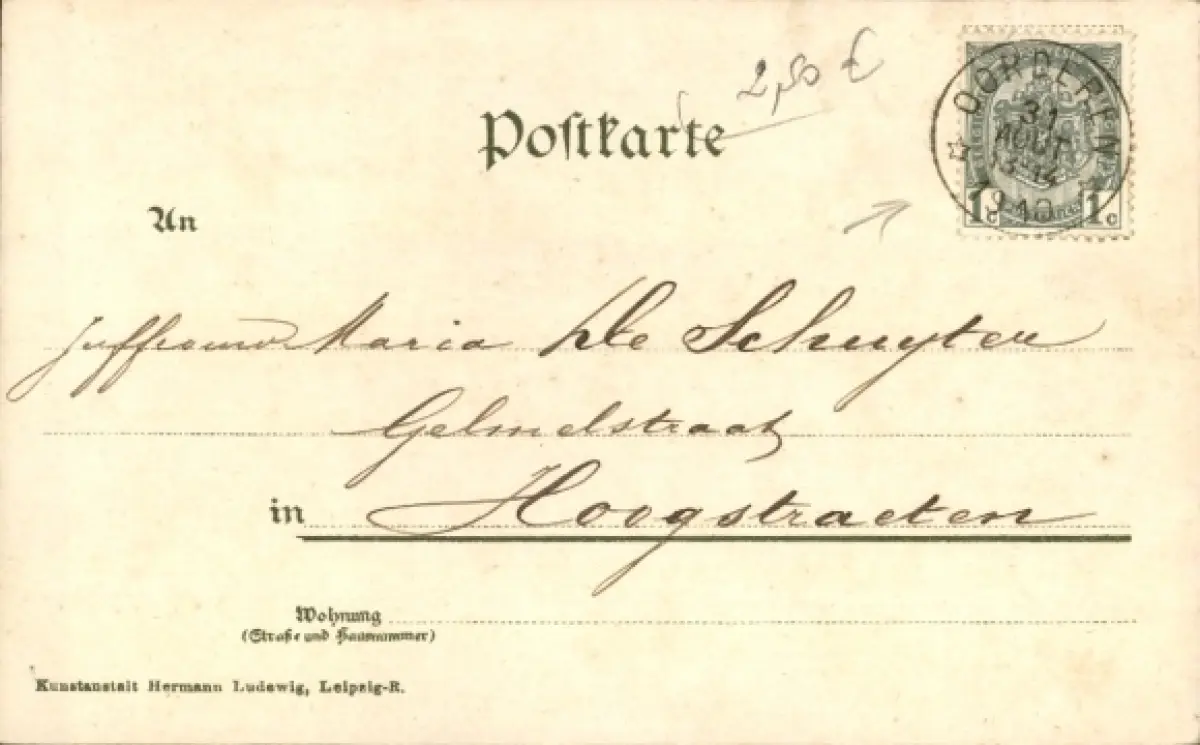 2,50 €
Postkarte
OORDEREN
31
AOUT
13-14
1910
1c 1c
An
Juffrouw Maria De Schuyter
Gelmelstraat
in Hoogstraeten
Wohnung
(Straße und Hausnummer)
Kunstanstalt Hermann Ludewig, Leipzig-R.